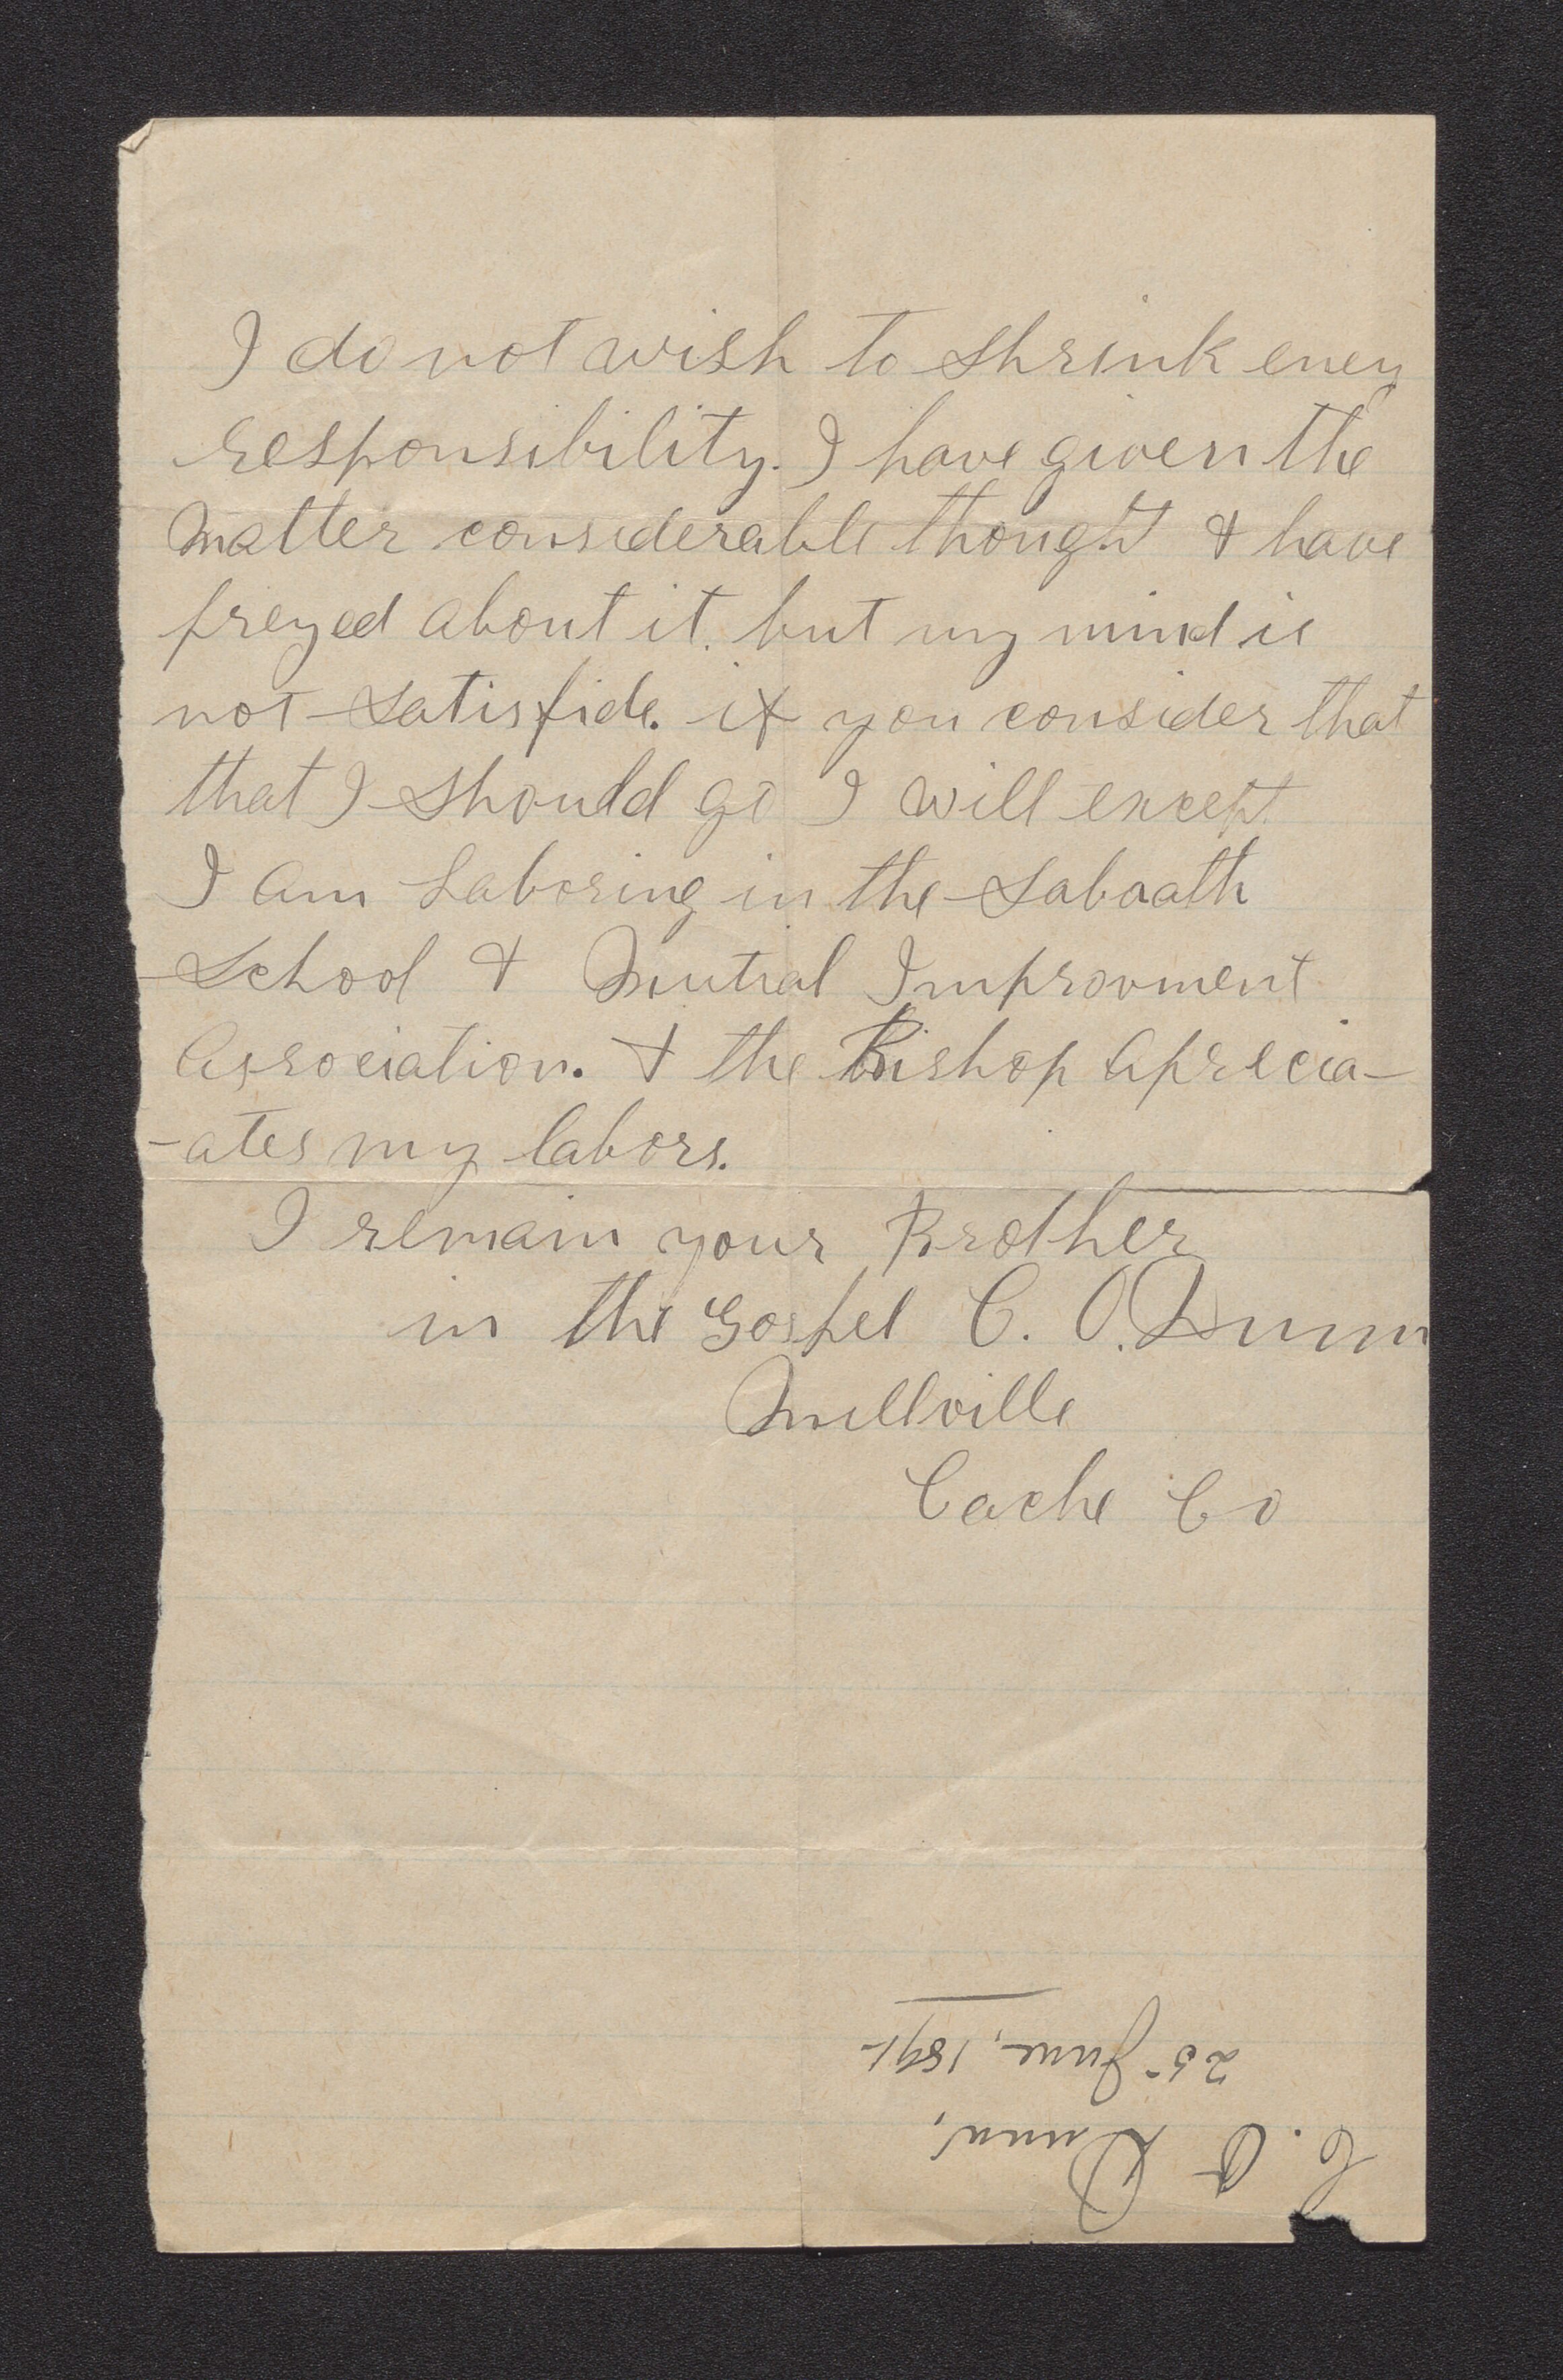 I do not wish to shrink eney
responsibility. I have given the
Matter considerable thought & have
preyed about it. but my mind is
not satisfide. if you consider that
that I should go I will except
I am Laboring in the Sabaath
School & Mutual Improvment
Association. & the Bishop aprecia-
-ates my labors.
I remain your Brother
in the Gospel C. O. Dunn
Millville
Cache Co
C. O Dunn,
25 June, 1891